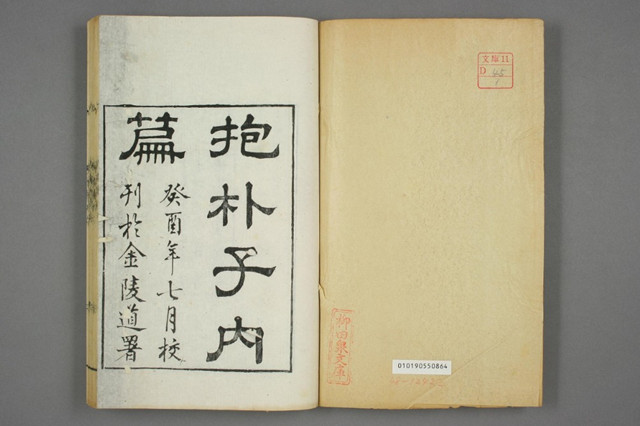 抱朴子内
篇
癸酉年七月校
刊於金陵道署
文庫11
D 45
1
柳田泉文庫
010190550864